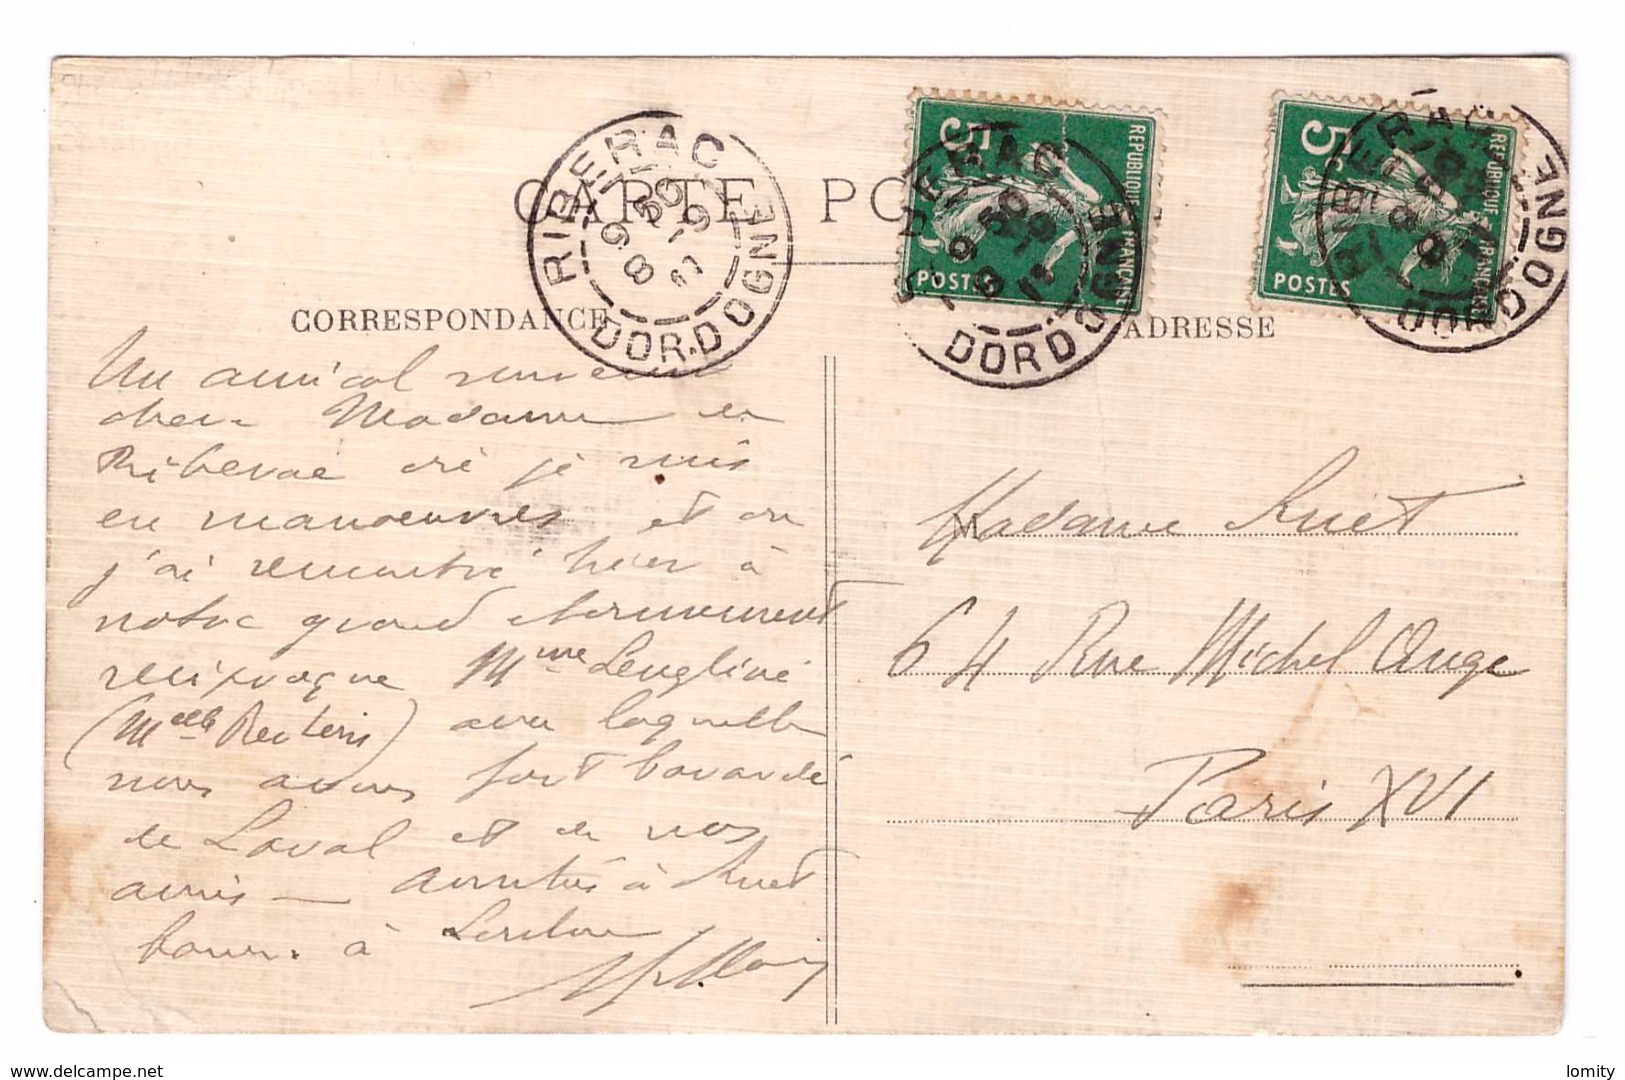 CARTE PO
RIBERAC
9 50
8 -9
11
DORDOGNE
5c
REPUBLIQUE FRANÇAISE
POSTES
RIBERAC
9 50
8 -9
11
DORDOGNE
5c
REPUBLIQUE FRANÇAISE
POSTES
RIBERAC
DORDOGNE
CORRESPONDANCE
ADRESSE
Un amical souvenir
chère Madame de
Riberac où je suis
en manoeuvres et où
j'ai rencontré hier à
notre grand étonnement
reciproque Mme
(Melle) avec laquelle
nous avons fort bavardé
de Laval et de nos
amis — amitiés à Ruet
à
M Madame Ruet
64 Rue Michel Ange
Paris XVI
www.delcampe.net
lomity